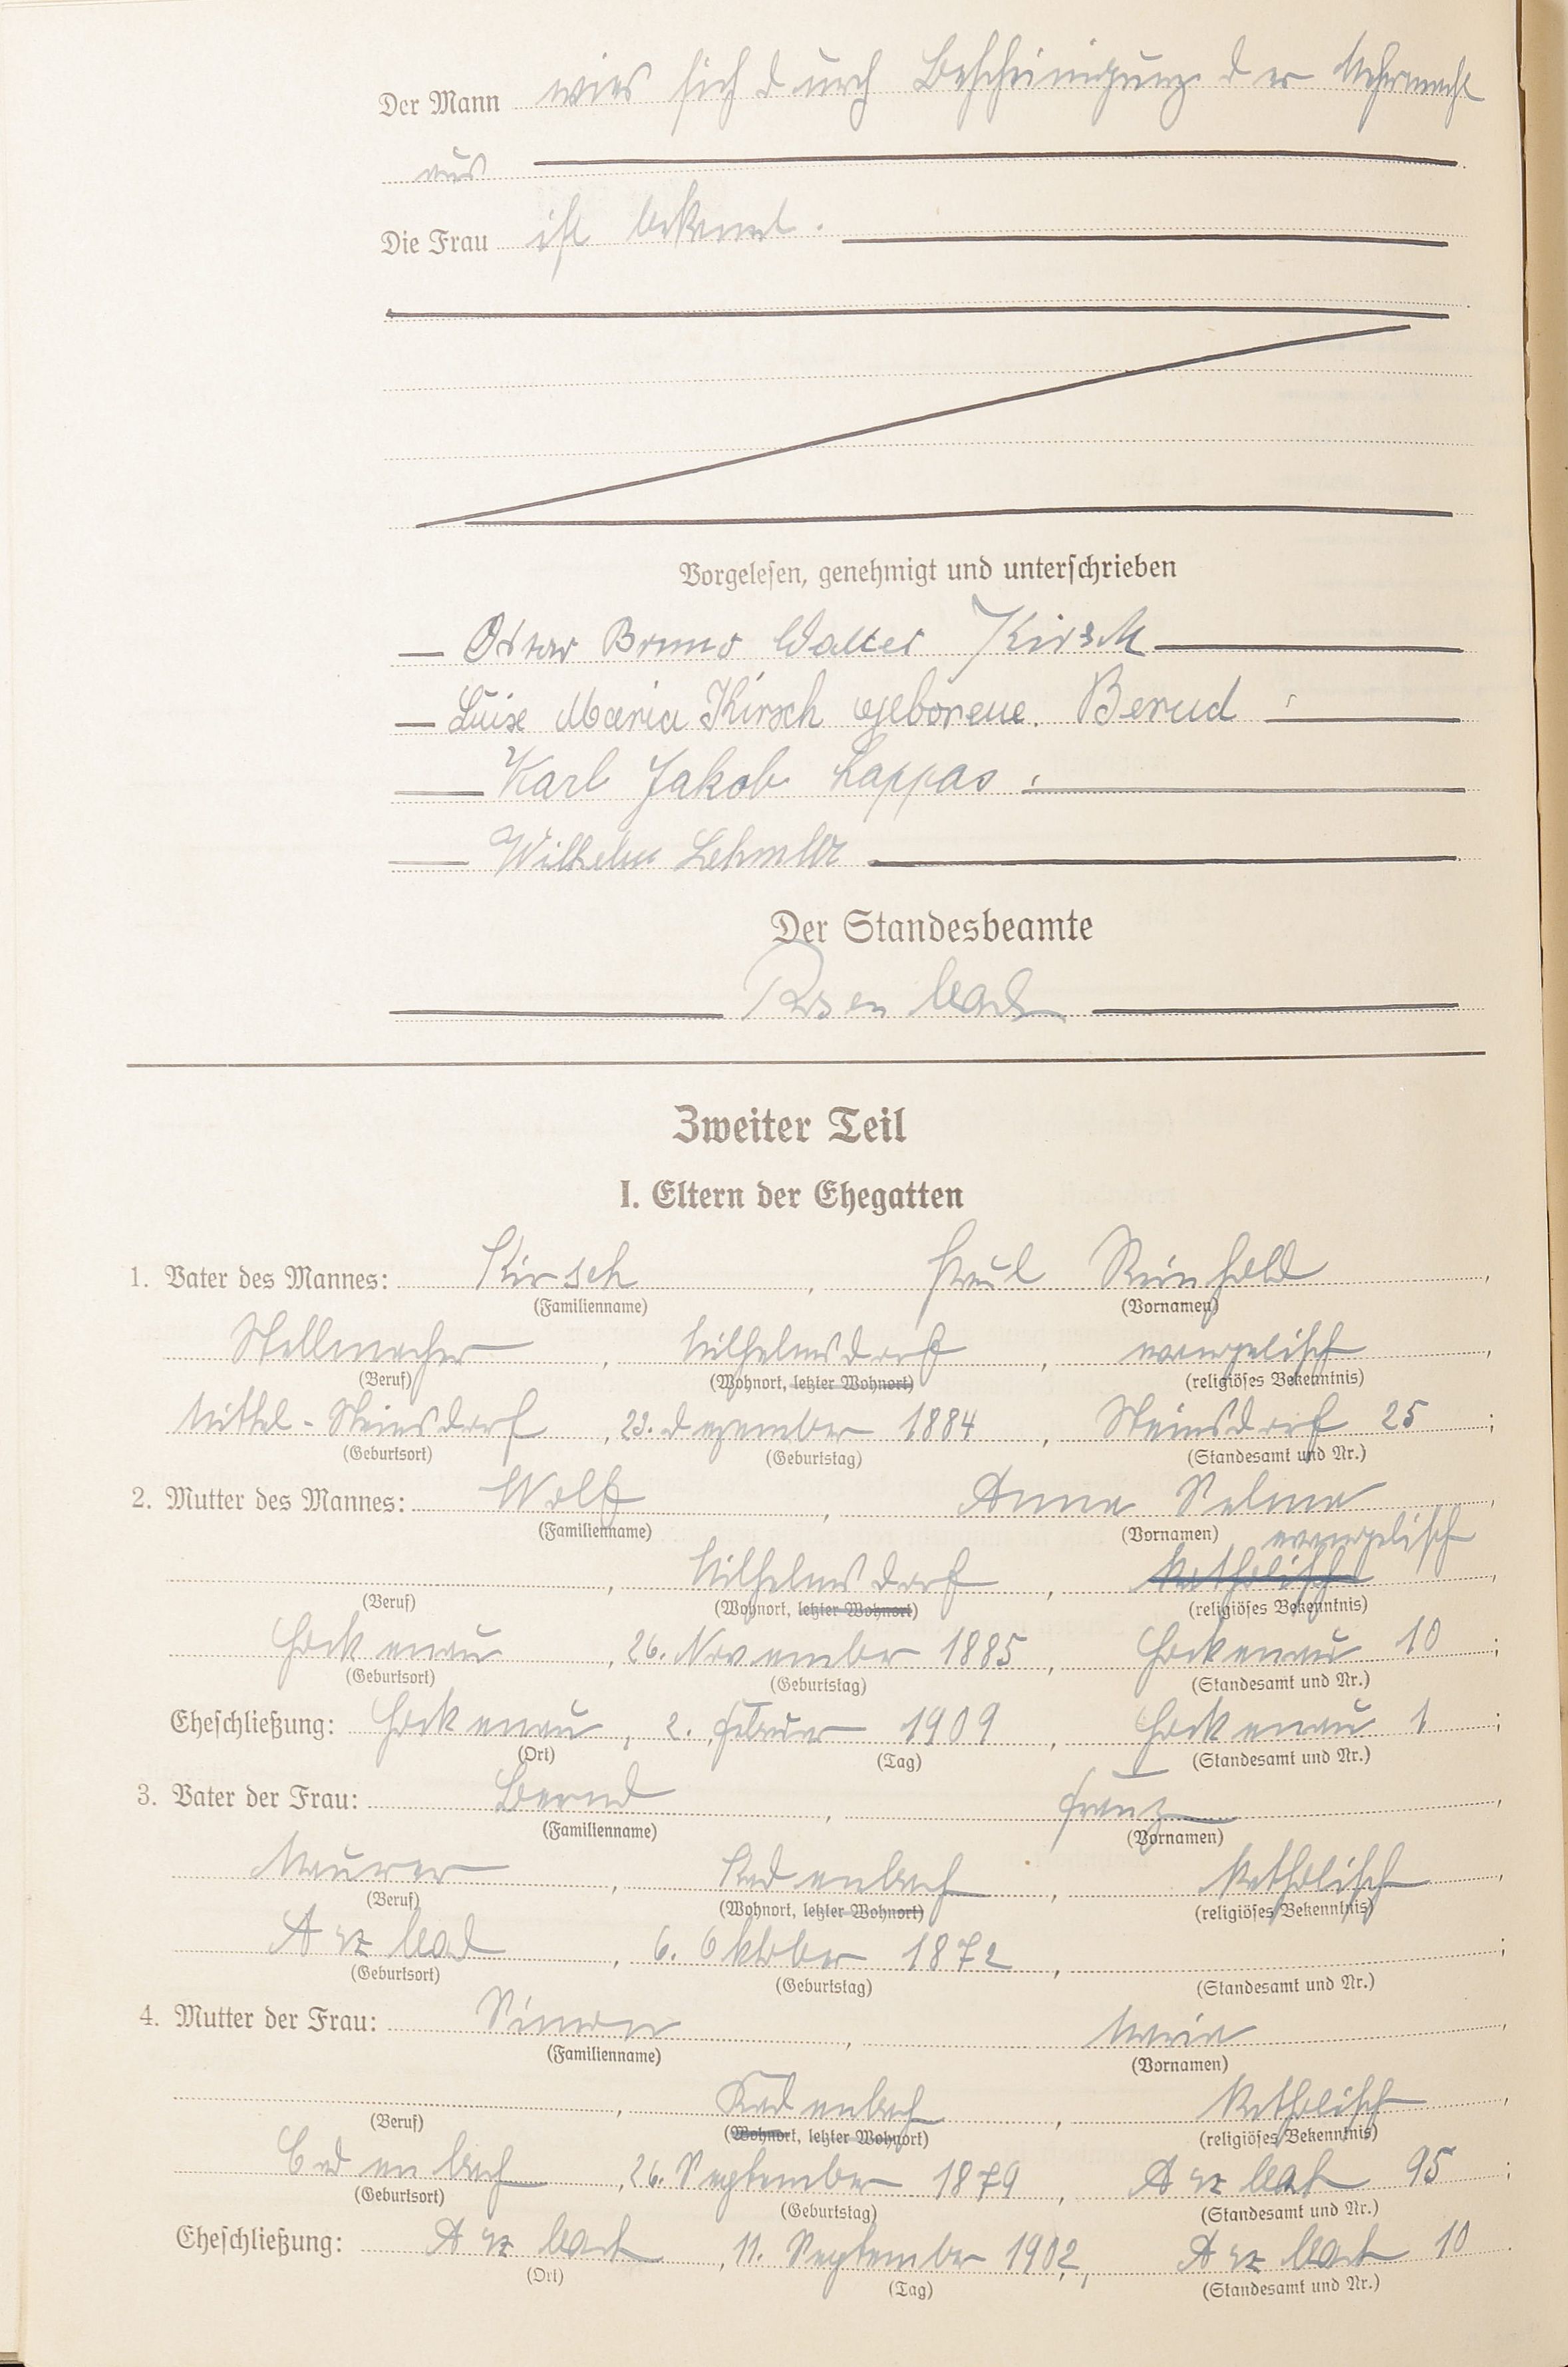 Der Mann wies sich durch Bescheinigung der Wehrmacht
aus
Die Frau ist bekannt.
Vorgelesen, genehmigt und unterschrieben
Oskar Bruno Walter Kirsch
Luise Maria Kirsch geborene. Bernd
Karl Jakob Lappas
Wilhelm Lehmler
Der Standesbeamte
Zweiter Teil
I. Eltern der Ehegatten
1. Vater des Mannes: Kirsch, Paul Reinhold,
(Familienname) (Vornamen)
Stellmacher, Wilhelmsdorf, evangelisch,
(Beruf) (Wohnort, letzter Wohnort) (religiöses Bekenntnis)
Mittel-Steinsdorf, 23. Dezember 1884, Steinsdorf 25;
(Geburtsort) (Geburtstag) (Standesamt und Nr.)
2. Mutter des Mannes: Wolf, Anna Selma,
(Familienname) (Vornamen) evangelisch
, Wilhelmsdorf, katholisch,
(Beruf) (Wohnort, letzter Wohnort) (religiöses Bekenntnis)
Hockenau, 26. November 1885, Hockenau 10;
(Geburtsort) (Geburtstag) (Standesamt und Nr.)
Eheschließung: Hockenau, 2. Februar 1909, Hockenau 1;
(Ort) (Tag) (Standesamt und Nr.)
3. Vater der Frau: Bernd, Franz,
(Familienname) (Vornamen)
Maurer, Kadenbach, katholisch,
(Beruf) (Wohnort, letzter Wohnort) (religiöses Bekenntnis)
Arzbach, 6. Oktober 1872, ;
(Geburtsort) (Geburtstag) (Standesamt und Nr.)
4. Mutter der Frau: Simon, Maria,
(Familienname) (Vornamen)
, Kadenbach, katholisch,
(Beruf) (Wohnort, letzter Wohnort) (religiöses Bekenntnis)
Cadenbach, 26. September 1879, Arzbach 95;
(Geburtsort) (Geburtstag) (Standesamt und Nr.)
Eheschließung: Arzbach, 11. September 1902, Arzbach 10.
(Ort) (Tag) (Standesamt und Nr.)